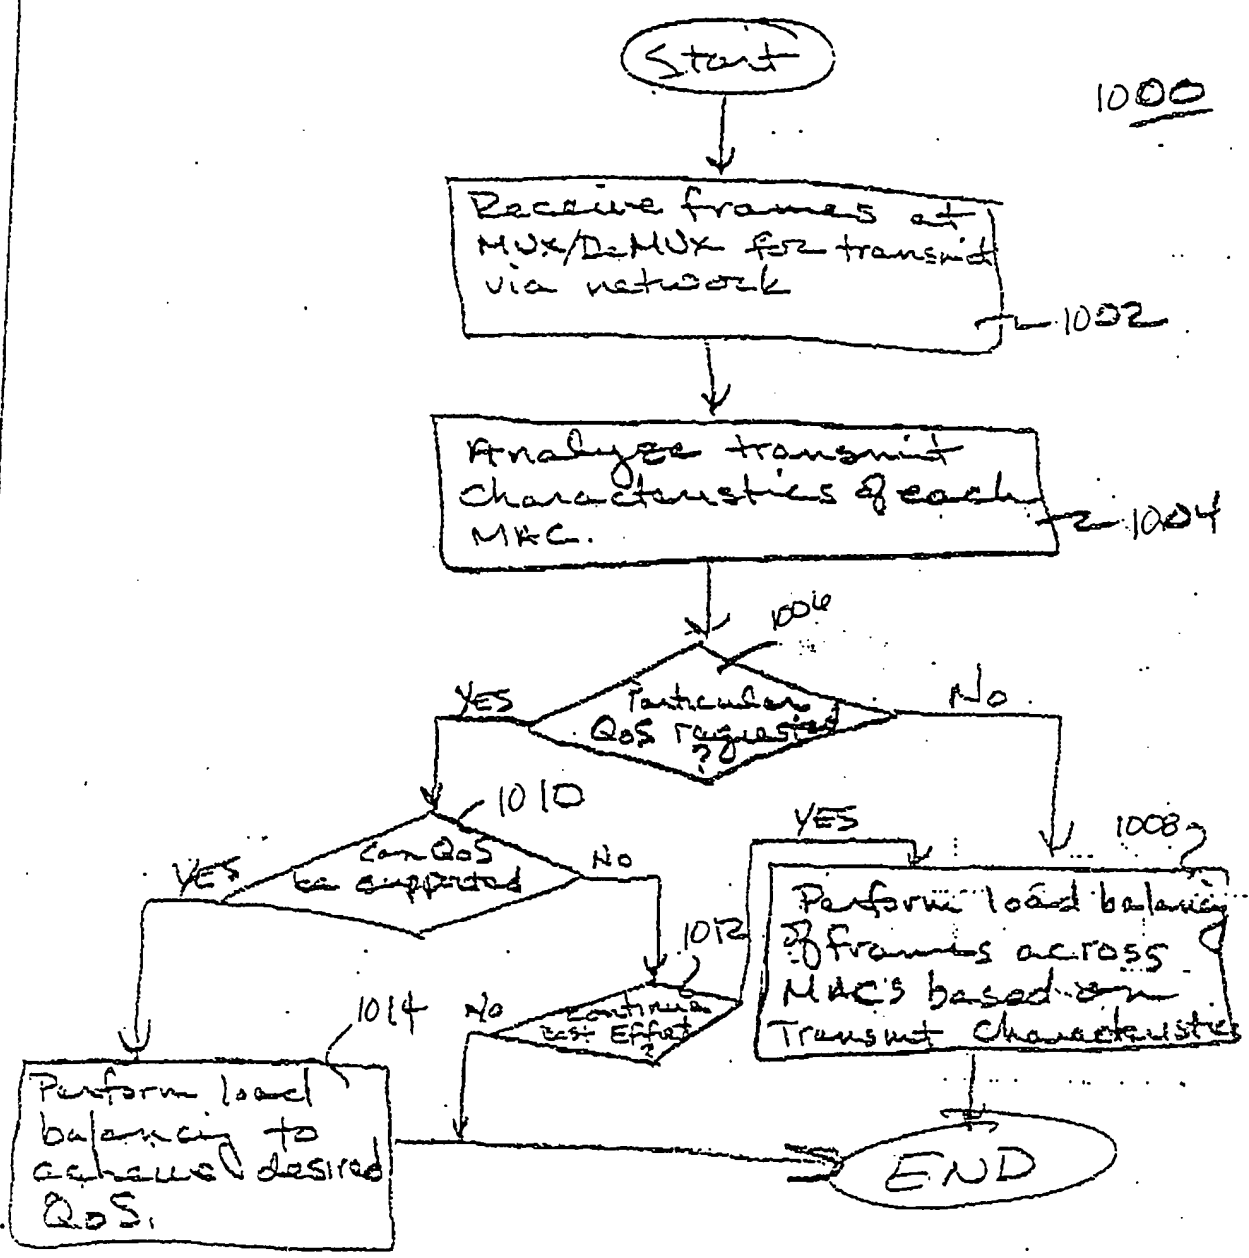 Start
1000
Receive frames at
MUX/DeMUX for transmit
via network
1002
Analyze transmit
Characteristics of each
MAC.
1004
1006
YES
Particular
QoS requested
?
No
1010
Can QoS
be supported
YES
No
YES
1008
Perform load balancing
of frames across
MAC's based on
Transmit Characteristics
1012
No
Continue
Best Effort
?
1014
Perform load
balancing to
achieve desired
QoS.
END